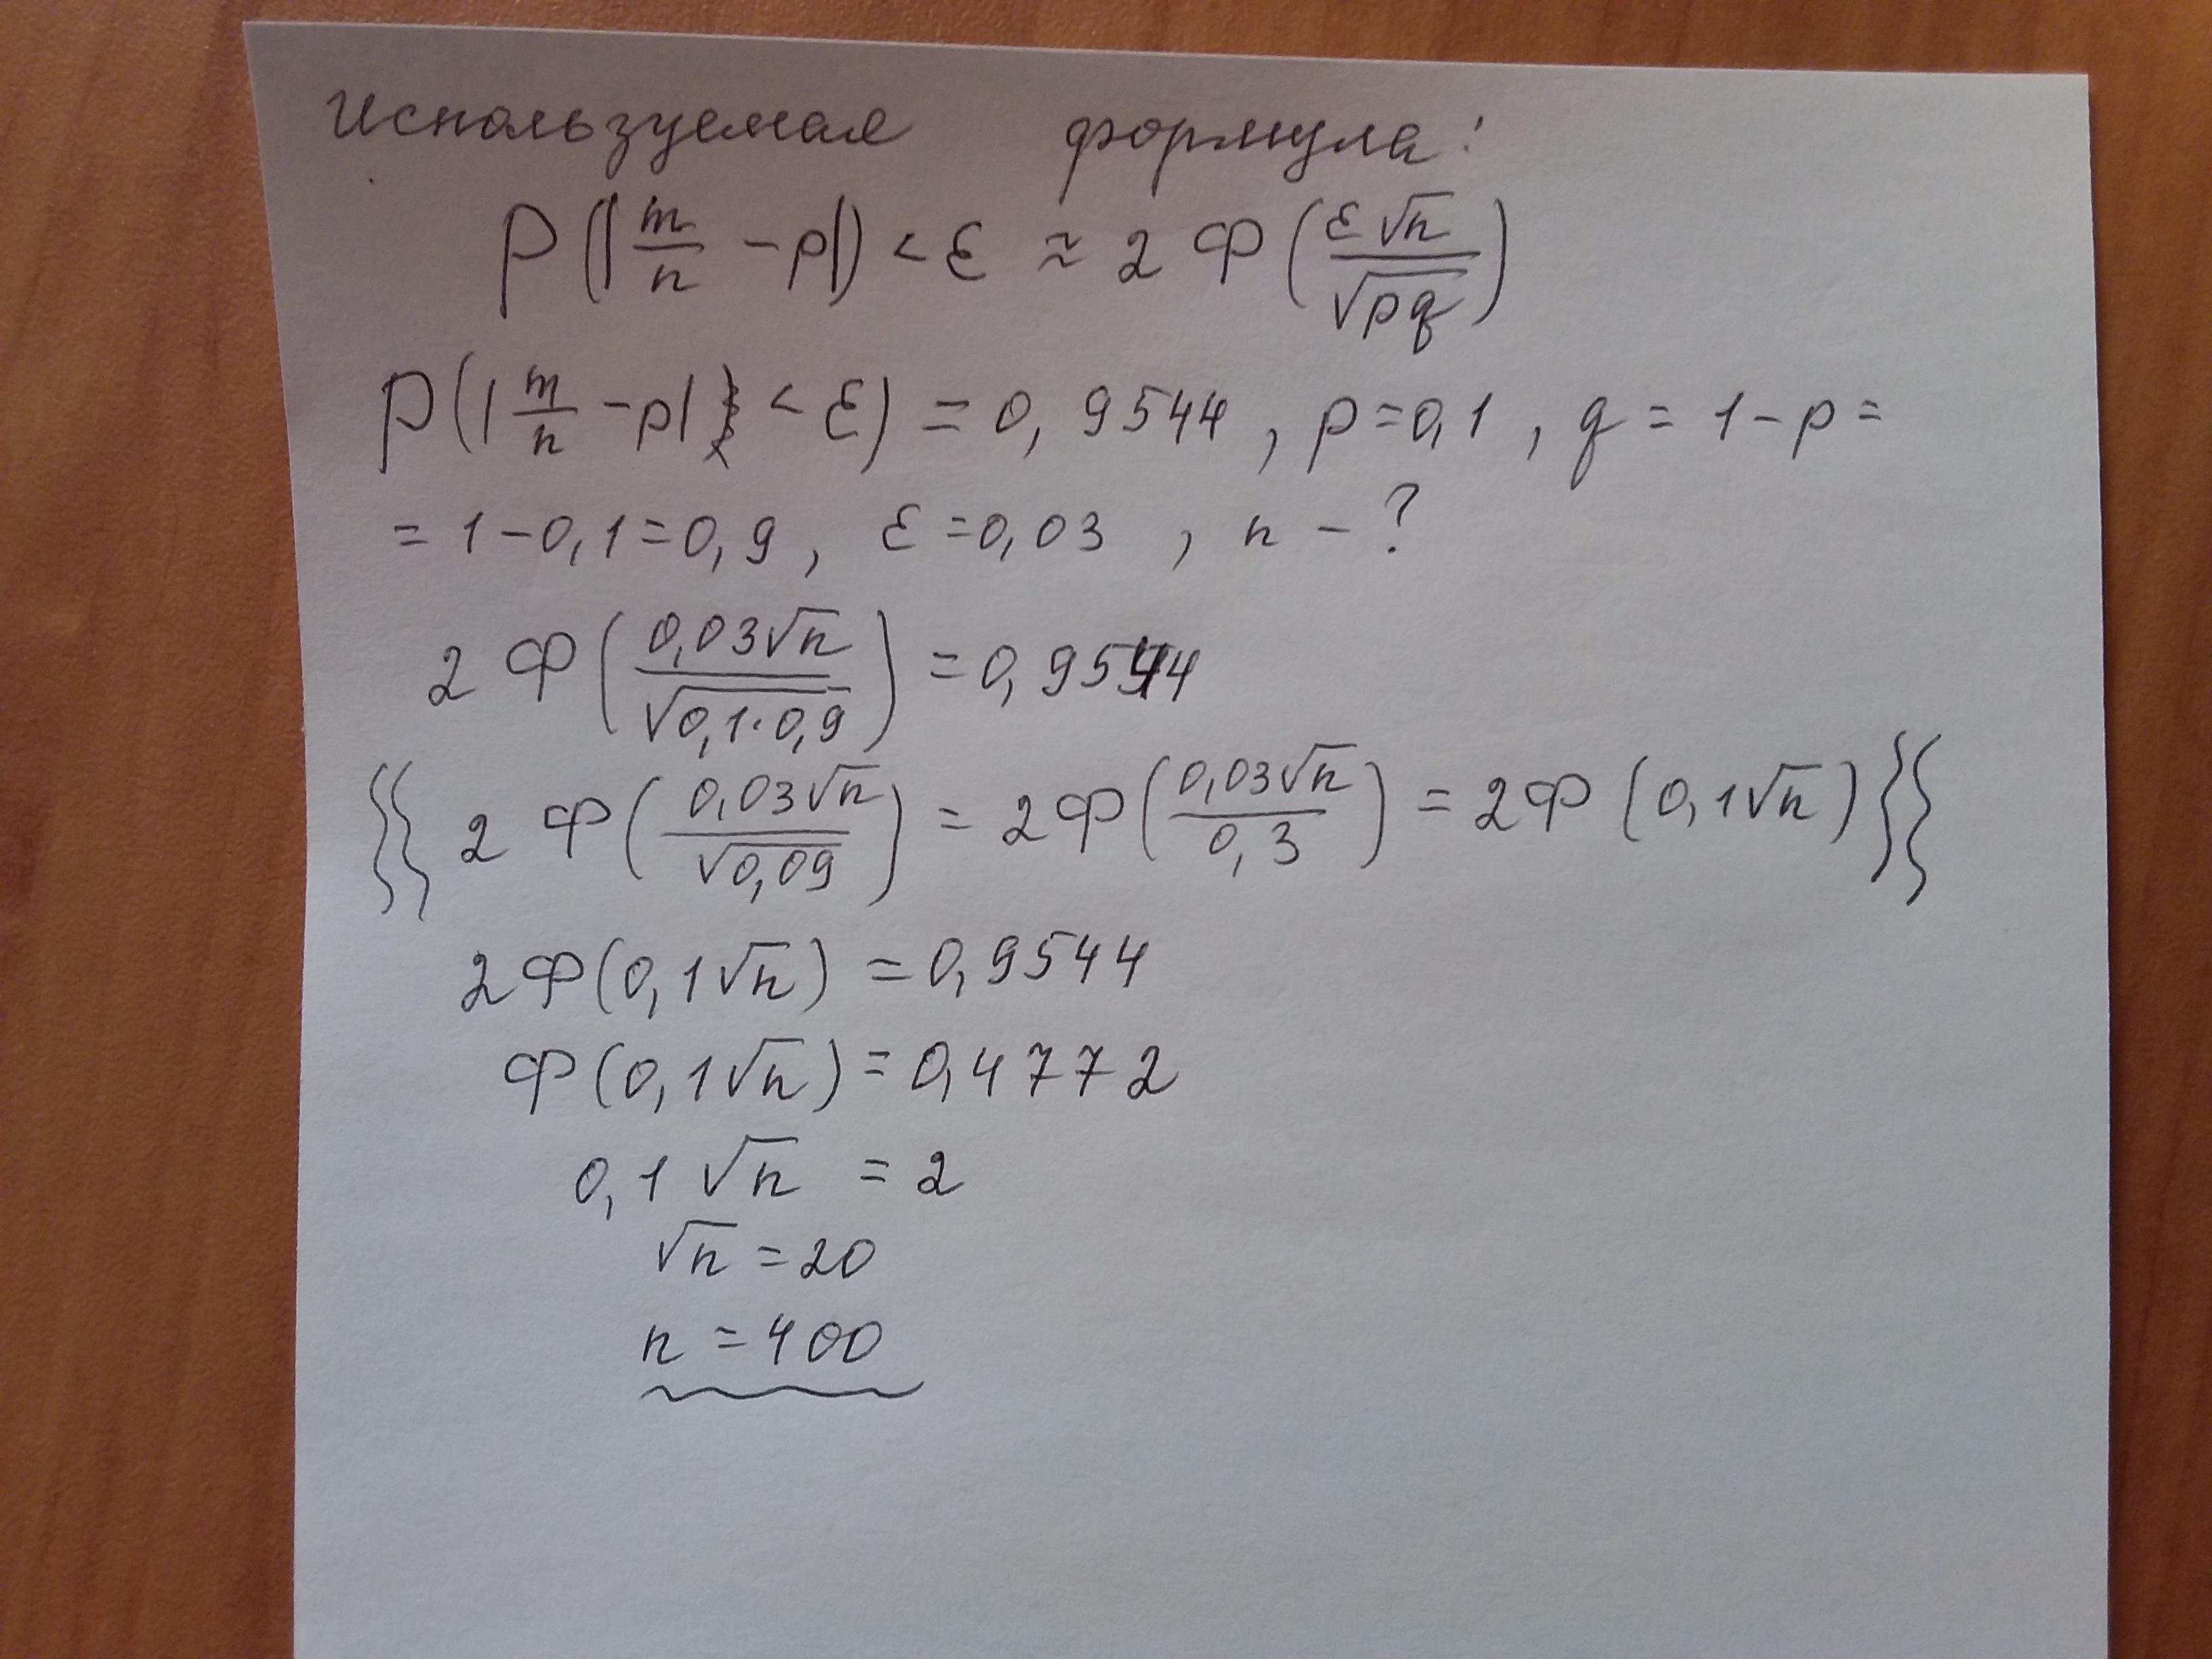 Используемая формула:
P(|m/n - p|) < ε ≈ 2Ф(ε√n/√pq)
P(|m/n - p| < ε) = 0,9544, p = 0,1, q = 1 - p =
= 1 - 0,1 = 0,9, ε = 0,03, n - ?
2Ф(0,03√n/√0,1·0,9) = 0,9544
{{2Ф(0,03√n/√0,09) = 2Ф(0,03√n/0,3) = 2Ф(0,1√n)}}
2Ф(0,1√n) = 0,9544
Ф(0,1√n) = 0,4772
0,1√n = 2
√n = 20
n = 400